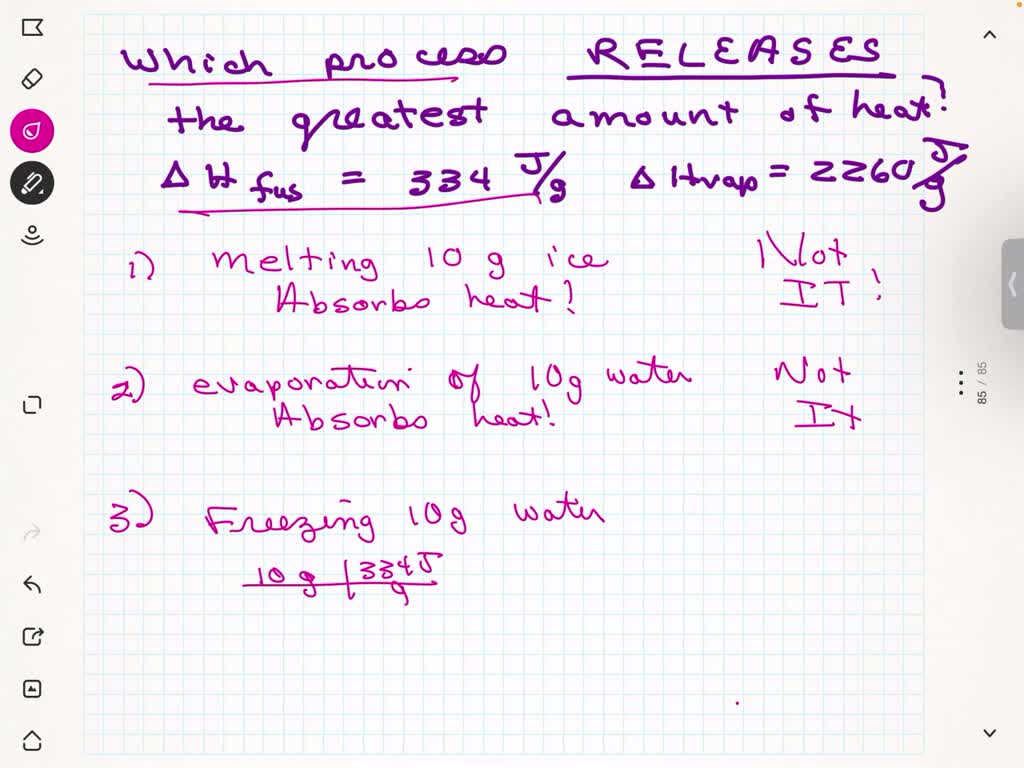 Which process RELEASES
the greatest amount of heat?
Δ H fus = 334 J/g Δ Hvap = 2260 J/g
1) melting 10 g ice Not
Absorbs heat! IT!
2) evaporation of 10g water Not
Absorbs heat! It
3) Freezing 10g water
10 g | 334 J
g
85 / 85